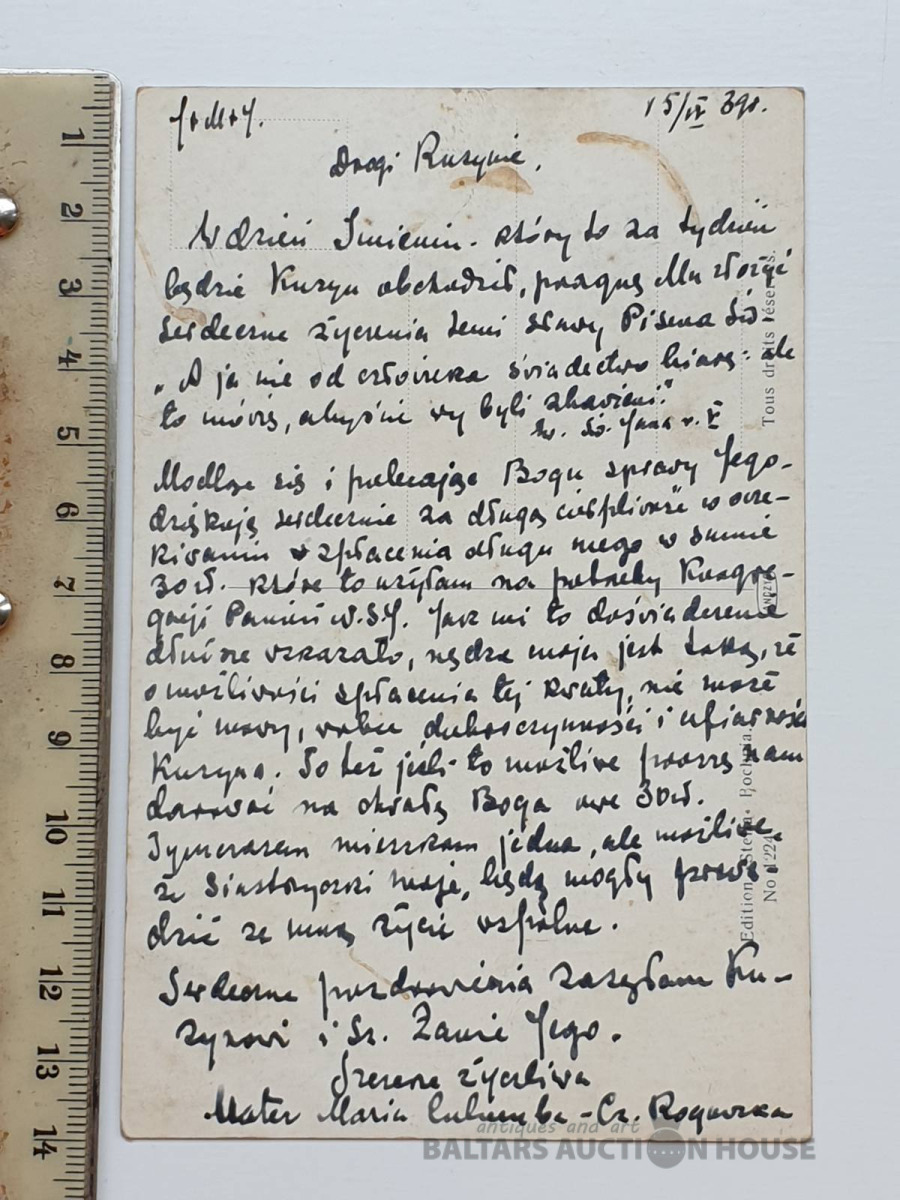 J+M+J.
15/IV 39r.
Drogi Kuzynie,
W dzień Imienin - który to za tydzień
będzie Kuzyn obchodził, pragnę Mu złożyć
serdeczne życzenia temi słowy Pisma Św-
„A ja nie od człowieka świadectwo biorę: ale
to mówię, abyście wy byli zbawieni."
Św. Jana r. V
Modlę się i polecając Bogu sprawy Jego-
dziękuję serdecznie za długą cierpliwość w ocze-
kiwaniu spłacenia długu mego w sumie
30 zł. które to użyłam na potrzeby Kongre-
gacji Panień N.S.J. Jak mi to doświadczenie
wykazało, nędza moja jest taka, że
o możliwości spłacenia tej kwoty, nie może
być mowy, wobec dobroczynności i ofiarności
Kuzyna. To też jeśli to możliwe proszę nam
darować na chwałę Boga owe 30 zł.
Tymczasem mieszkam jedna, ale możliwe,
że Siostrzyczki moje, będą mogły prowa-
dzić ze mną życie wspólne.
Serdeczne pozdrowienia zasyłam Ku-
zynowi i Sz. Żonie Jego.
Szczerze życzliwa
Mater Maria Columba - Cz. Rogowska
Tous droits réservés.
Edition "Stella" Bochnia.
No 1224
antiques and art
BALTARS AUCTION HOUSE
1
2
3
4
5
6
7
8
9
10
11
12
13
14